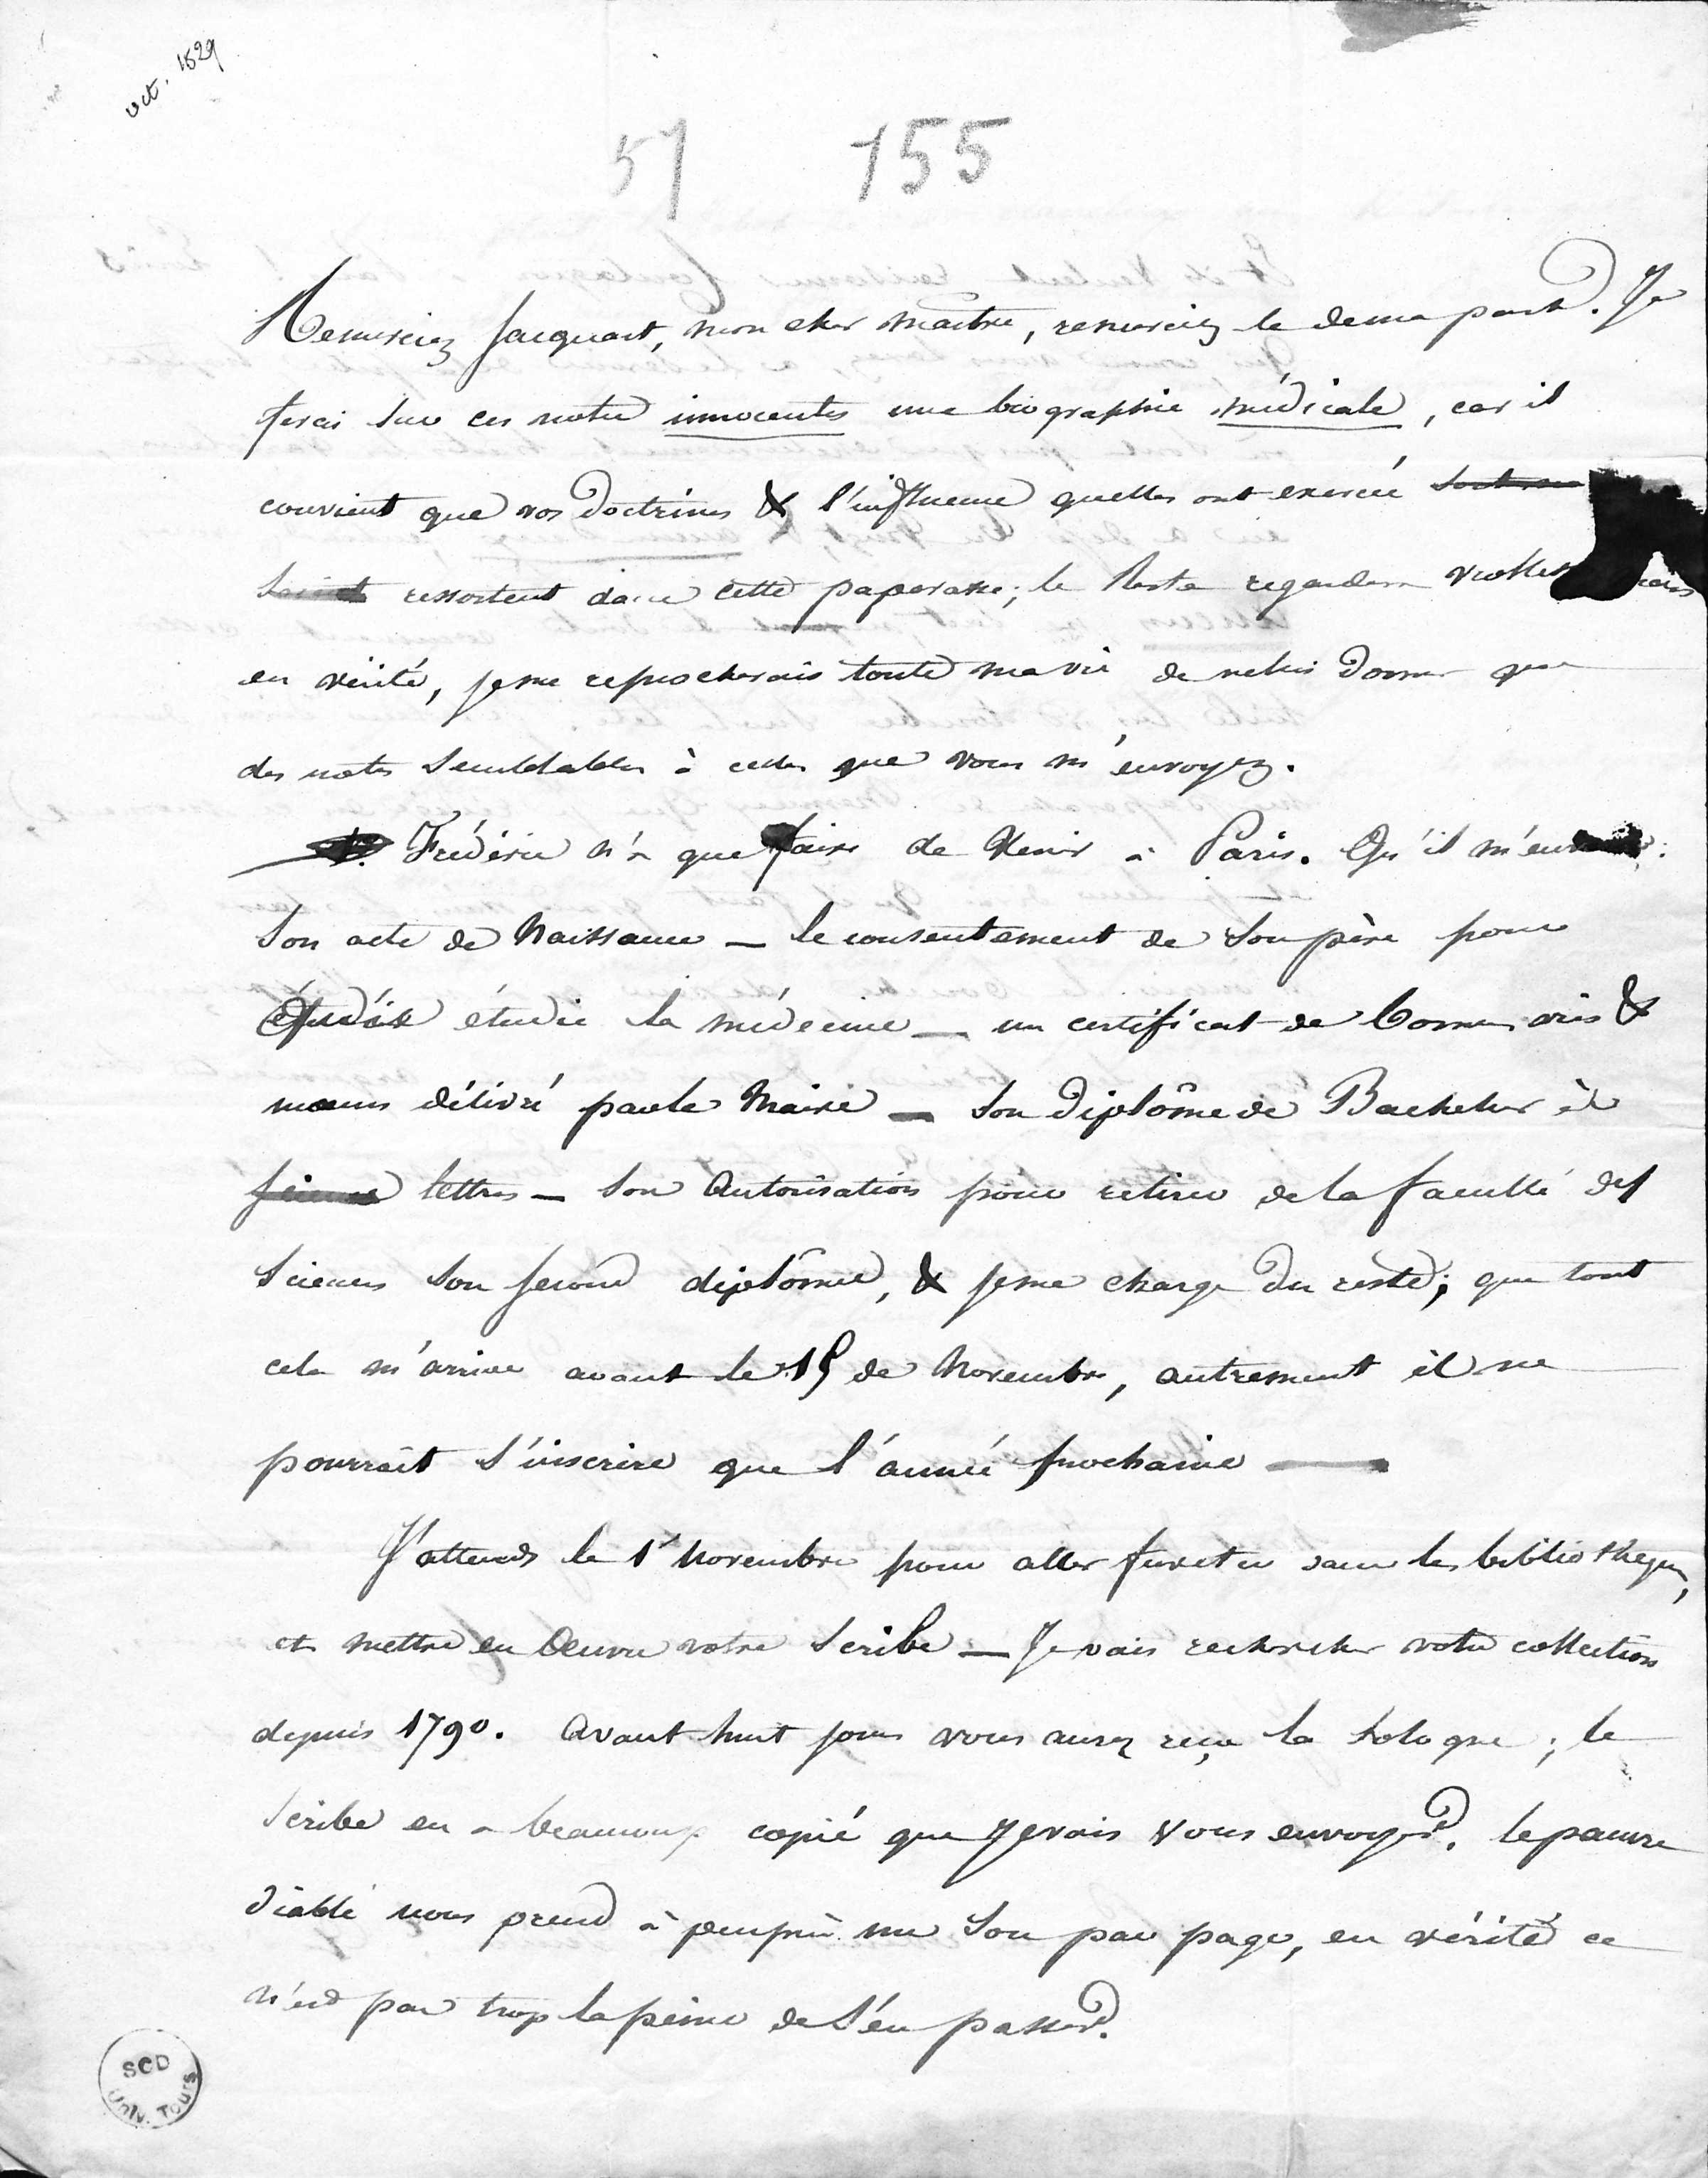 oct. 1829
57 155
Remerciez Jacquart, mon cher maître, remerciez le de ma part. Je
ferai sur ces notes innocentes une biographie médicale, car il
convient que vos doctrines & l'influence quelles ont exercée
ressortent dans cette paperasse; le reste regardera
en vérité, je me reprocherais toute ma vie de ne lui donner que
des notes semblables à celles que vous m'envoyez.
Frédéric n'a que faire de venir à Paris. Qu'il m'envoie:
Son acte de Naissance — le consentement de son père pour
étudier la médecine — un certificat de bonnes vies &
mœurs délivré par le Maire — Son Diplôme de Bachelier ès
lettres — Son Autorisation pour retirer de la faculté des
Sciences Son second diplôme, & je me charge du reste; que tout
cela m'arrive avant le 15 de Novembre, autrement il ne
pourrait s'inscrire que l'année prochaine —
J'attends le 1r Novembre pour aller fureter dans les bibliothèques,
et mettre en Oeuvre votre Scribe — Je vais rechercher votre collection
depuis 1790. Avant huit jours vous aurez reçu la Sologne; le
Scribe en a beaucoup copié que je vais vous envoyer. le pauvre
diable nous prend à peu près un Sou par page, en vérité ce
n'est pas trop la peine de s'en passer.
SCD
Univ. Tours